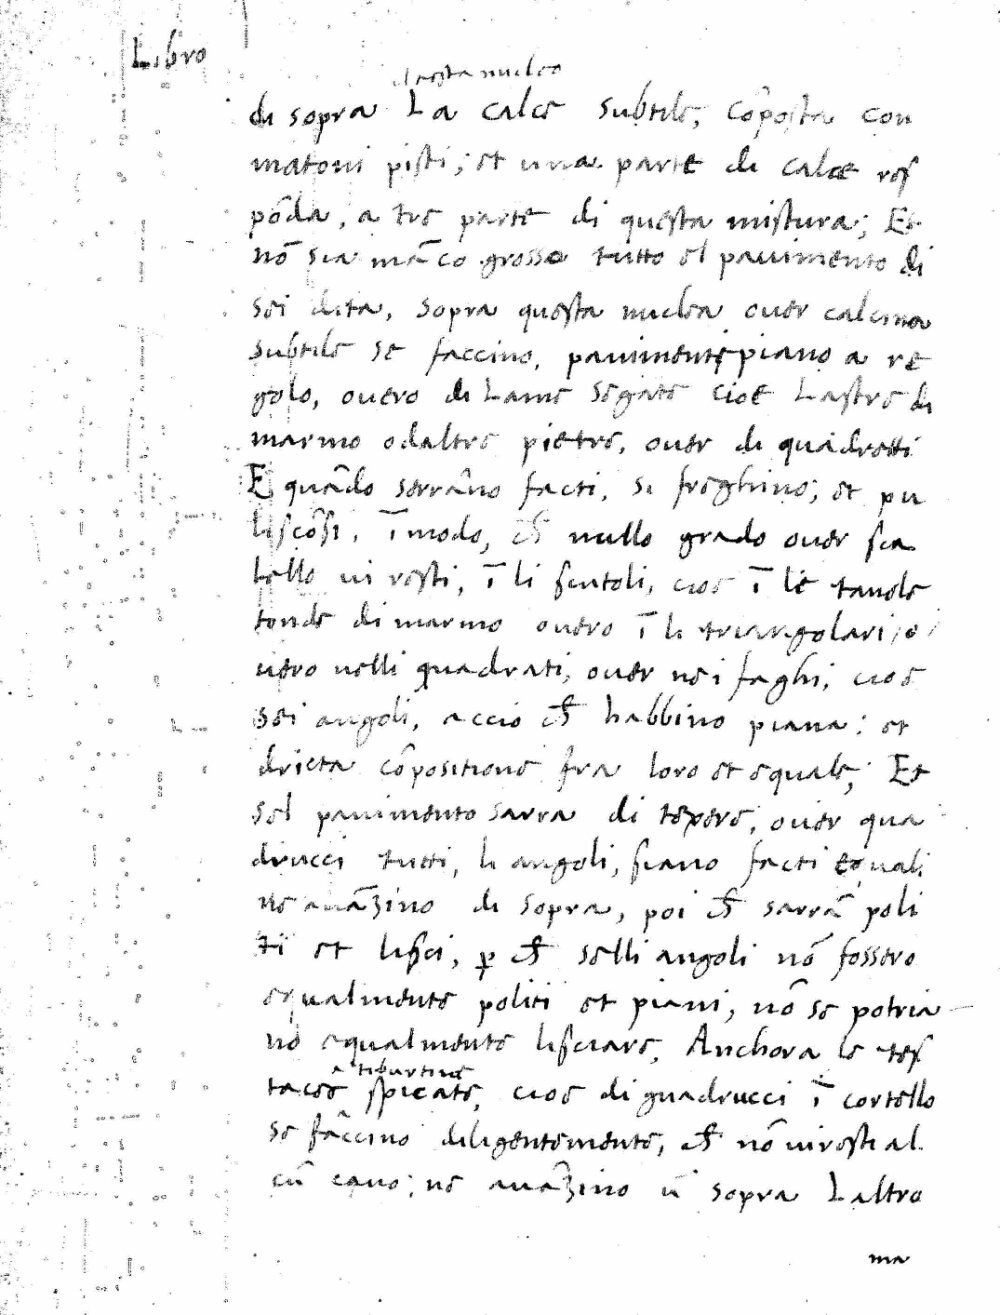 Libro
questa nuclea
di sopra La calce subtile, cōposta con
matoni pisti; et una parte di calce res
pōda, a tre parte di questa mistura; Et
nō sia māco grosso tutto el pavimento di
sei dita, sopra questa nuclea over calcina
subtile se faccino, pavimente piano a re
golo, overo di Lame segate cioe Lastre di
marmo o daltre pietre, over di quadretti
E quādo serrāno facti, si freghino; et pu
liscōsi, ī modo, ch̄ nullo grado over sca
lello vi resti, ī li scutoli, cioe ī le tavole
tonde di marmo overo ī li triangolari, o
vero nelli quadrati, over nei faghi, cioe
sei angoli, accio ch̄ habbino piana: et
drieta cōpositione fra loro et equale; Et
sel pavimento sarra di tepere, over qua
drucci tutti, li angoli, siano facti equali
ne avāzino di sopra, poi ch̄ sarrā poli
ti et lisci, p̱ ch̄ selli angoli nō fossero
equalmente politi et piani, nō se potria
no equalmente lisciare, Anchora le tes
a tiburtine
tacee spicate, cioe di quadrucci ī cortello
se fāccino diligentemente, ch̄ nō vi resti al
cū cavo; ne avāzino ū sopra Laltro
ma